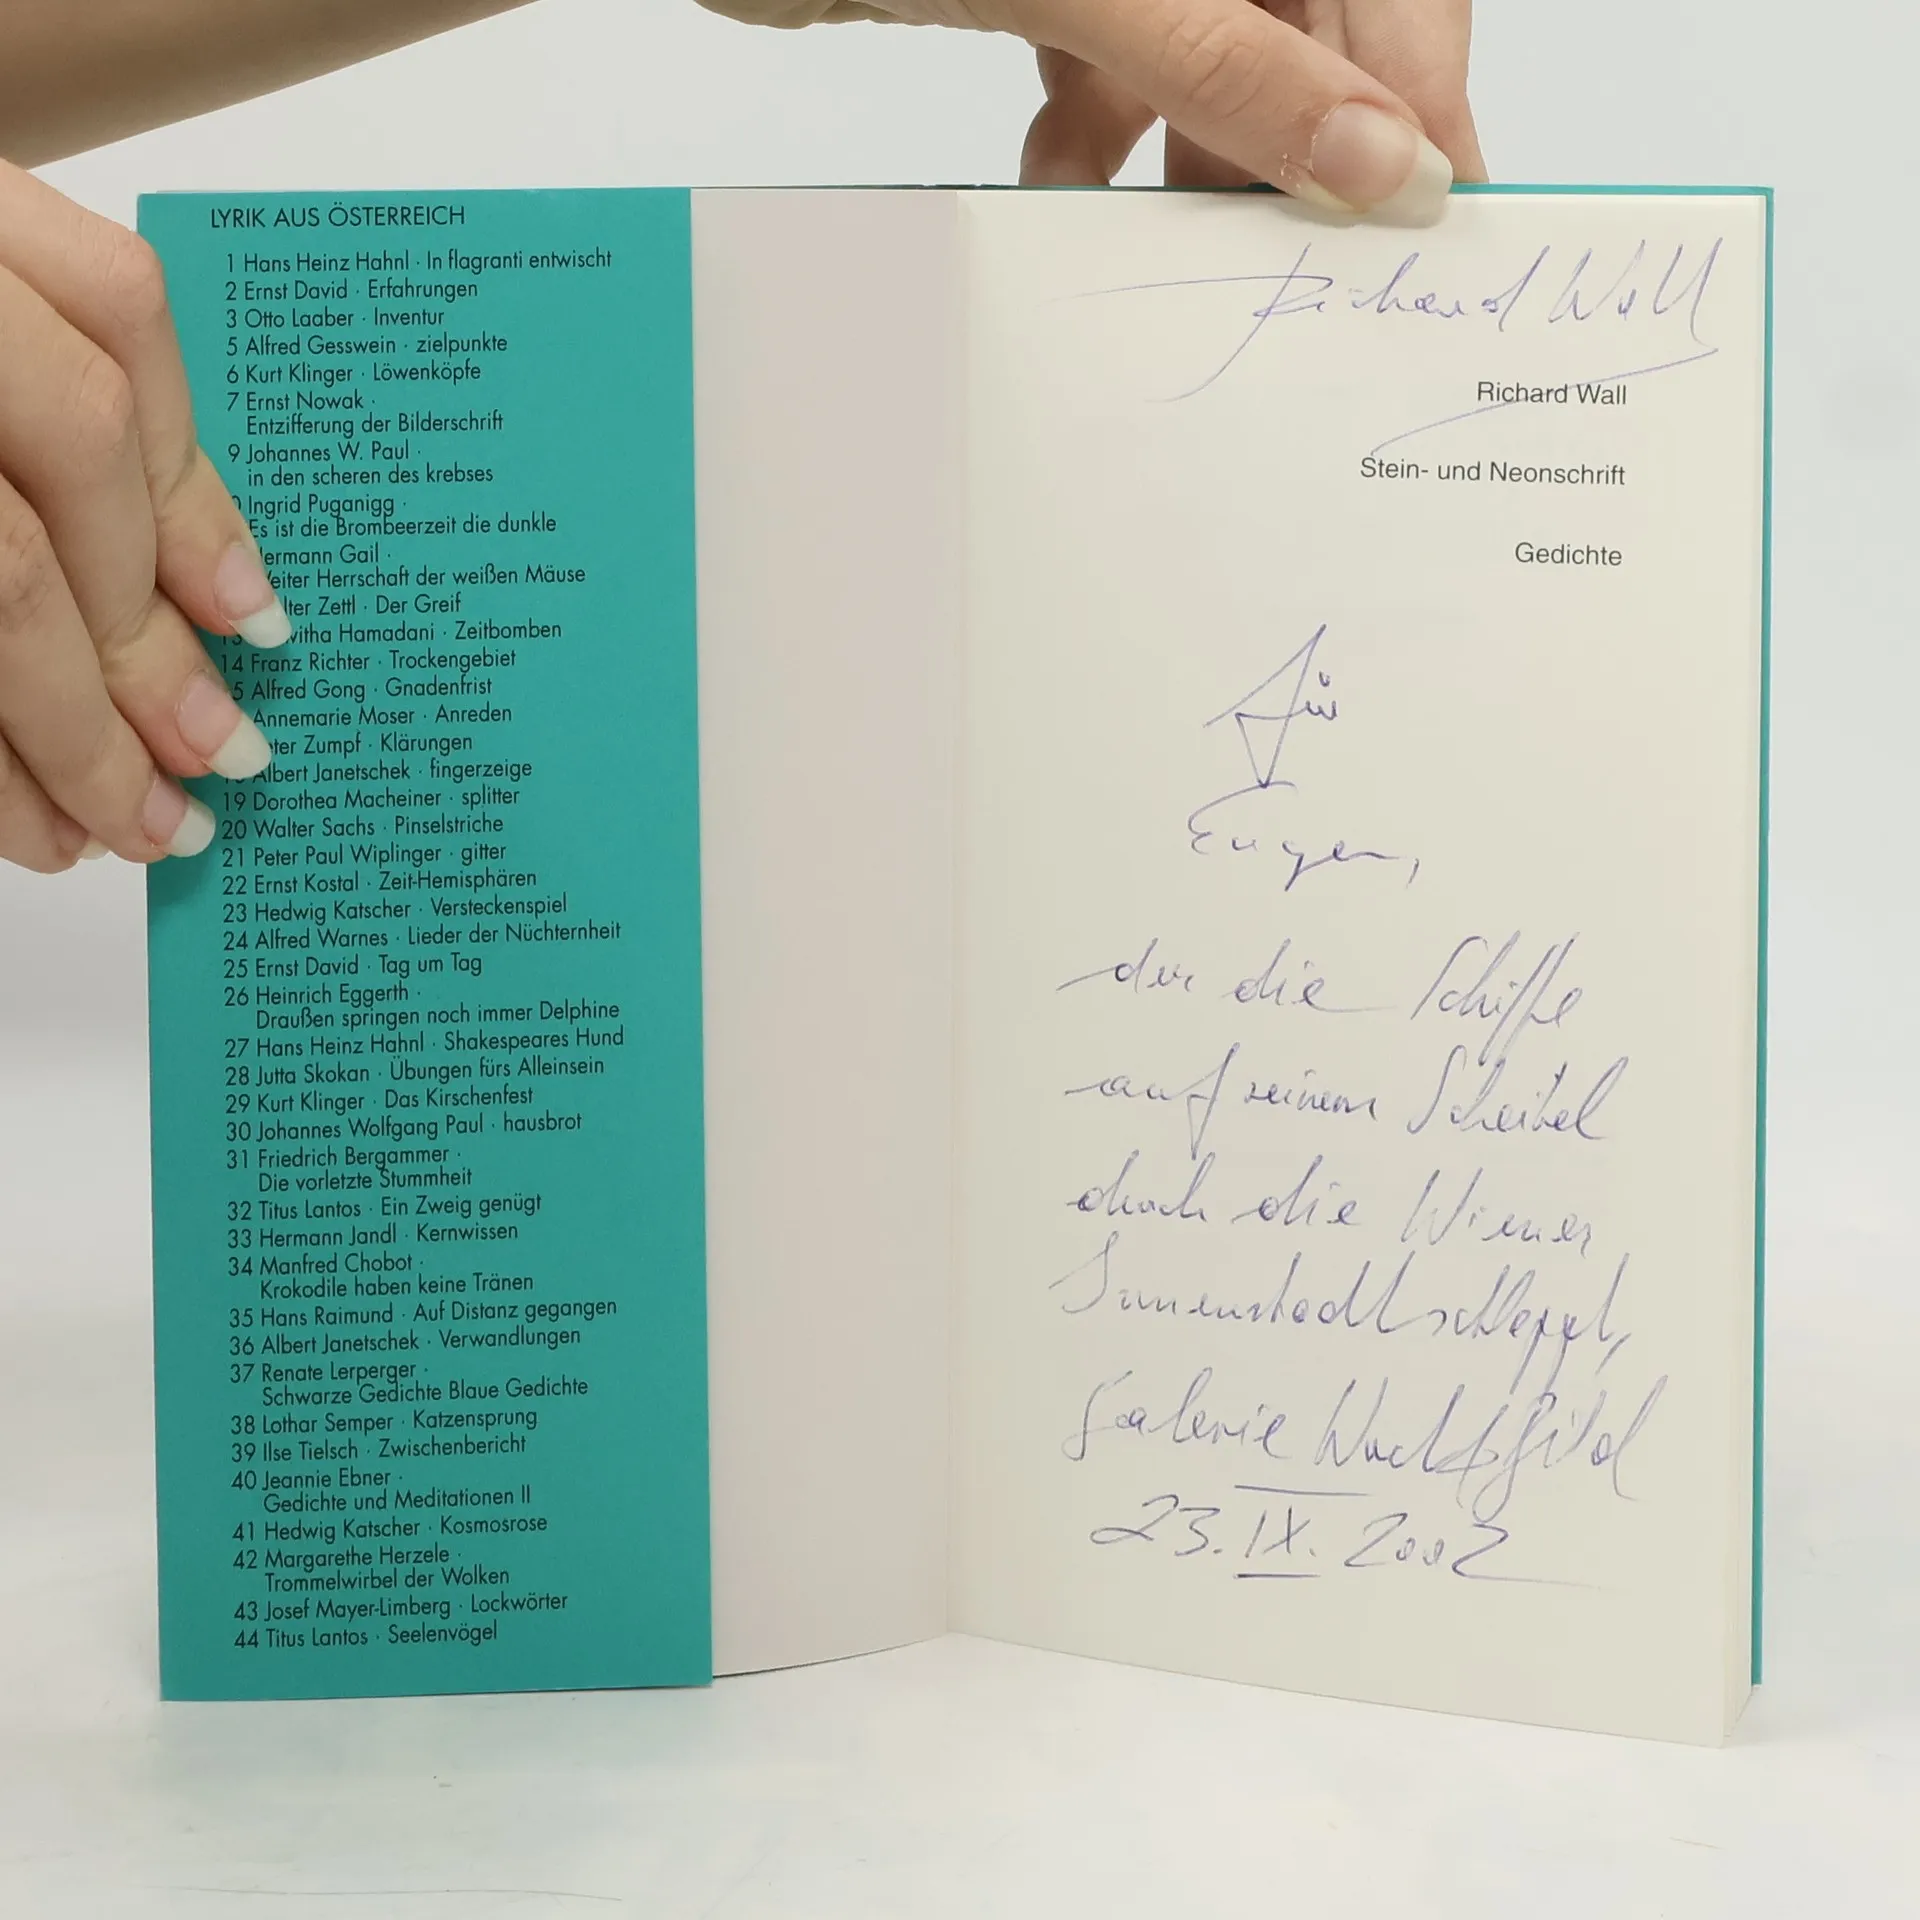 LYRIK AUS ÖSTERREICH
1 Hans Heinz Hahnl · In flagranti entwischt
2 Ernst David · Erfahrungen
3 Otto Laaber · Inventur
5 Alfred Gesswein · zielpunkte
6 Kurt Klinger · Löwenköpfe
7 Ernst Nowak ·
Entzifferung der Bilderschrift
9 Johannes W. Paul ·
in den scheren des krebses
Ingrid Puganigg ·
Es ist die Brombeerzeit die dunkle
ermann Gail ·
eiter Herrschaft der weißen Mäuse
lter Zettl · Der Greif
vitha Hamadani · Zeitbomben
14 Franz Richter · Trockengebiet
5 Alfred Gong · Gnadenfrist
Annemarie Moser · Anreden
ter Zumpf · Klärungen
Albert Janetschek · fingerzeige
19 Dorothea Macheiner · splitter
20 Walter Sachs · Pinselstriche
21 Peter Paul Wiplinger · gitter
22 Ernst Kostal · Zeit-Hemisphären
23 Hedwig Katscher · Versteckenspiel
24 Alfred Warnes · Lieder der Nüchternheit
25 Ernst David · Tag um Tag
26 Heinrich Eggerth ·
Draußen springen noch immer Delphine
27 Hans Heinz Hahnl · Shakespeares Hund
28 Jutta Skokan · Übungen fürs Alleinsein
29 Kurt Klinger · Das Kirschenfest
30 Johannes Wolfgang Paul · hausbrot
31 Friedrich Bergammer ·
Die vorletzte Stummheit
32 Titus Lantos · Ein Zweig genügt
33 Hermann Jandl · Kernwissen
34 Manfred Chobot ·
Krokodile haben keine Tränen
35 Hans Raimund · Auf Distanz gegangen
36 Albert Janetschek · Verwandlungen
37 Renate Lerperger ·
Schwarze Gedichte Blaue Gedichte
38 Lothar Semper · Katzensprung
39 Ilse Tielsch · Zwischenbericht
40 Jeannie Ebner ·
Gedichte und Meditationen II
41 Hedwig Katscher · Kosmosrose
42 Margarethe Herzele ·
Trommelwirbel der Wolken
43 Josef Mayer-Limberg · Lockwörter
44 Titus Lantos · Seelenvögel
Richard Wall
Richard Wall
Stein- und Neonschrift
Gedichte
Für
Eugen,
der die Schiffe
auf seinem Scheitel
durch die Wiener
Innenstadt schleppt,
Galerie
23. IX. 2002